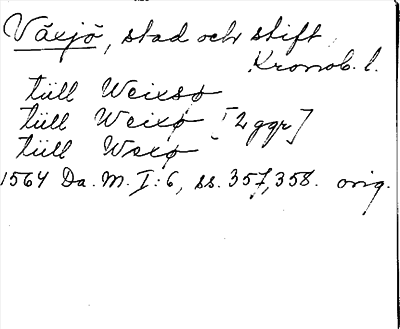 Växjö, stad och stift
Kronob. l.
tüll Weixsø
tüll Weixø [2 ggr]
tüll Wexø
1564 Da. M. I:6, ss. 357, 358. orig.